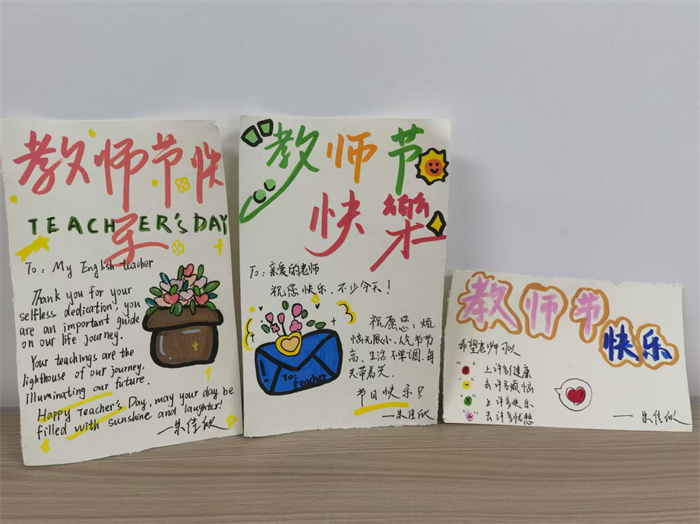 教师节快
乐
TEACHER'S DAY
To: My English teacher
Thank you for your
selfless dedication, you
are an important guide
on our life journey.
Your teachings are the
lighthouse of our journey.
illuminating our future.
Happy Teacher's Day, may your day be
filled with sunshine and laughter!
—朱佳欣
教师节
快樂
To: 亲爱的老师
祝您快乐,不少今天!
祝愿您:烦
恼无限小,人气节节
高,生活不单调,每
天带着笑
节日快乐!
To:
teacher
—朱佳欣
教师节
快乐
希望老师可以
"+"上许多健康
"-"去许多烦恼
"×"上许多快乐
"÷"去许多忧愁
—朱佳欣